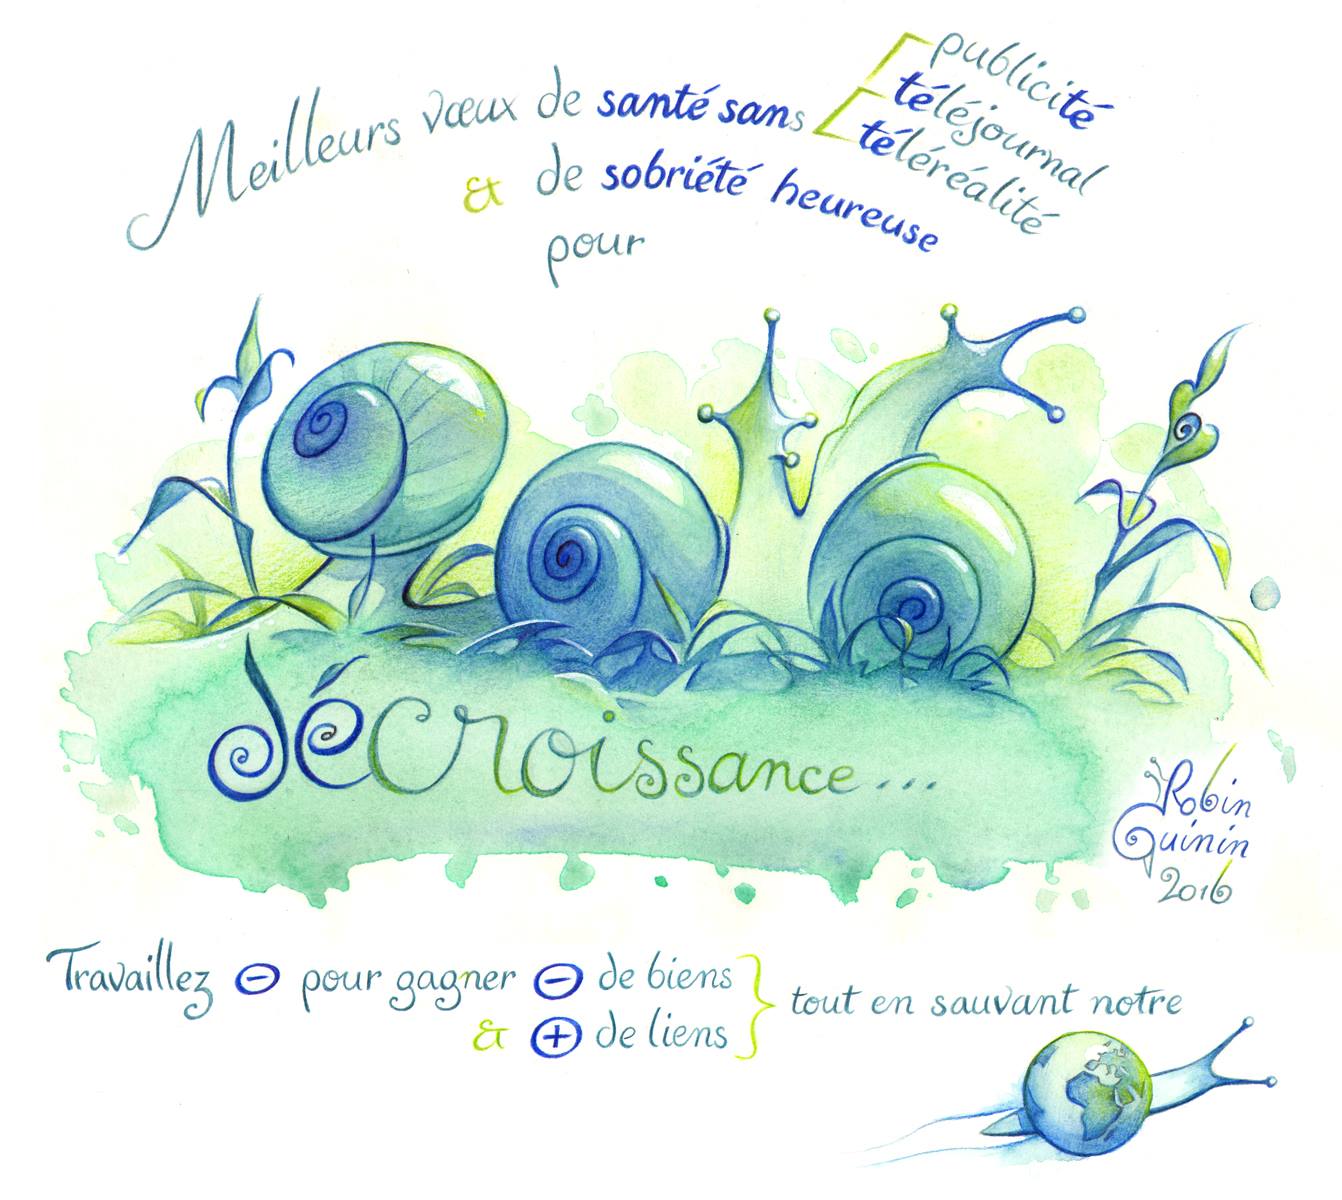 Meilleurs vœux de santé sans publicité
téléjournal
téléréalité
& de sobriété heureuse
pour
décroissance...
Robin
Guinin
2016
Travaillez - pour gagner - de biens
& + de liens
tout en sauvant notre